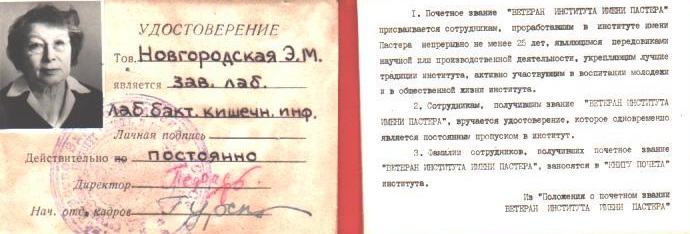 УДОСТОВЕРЕНИЕ
Тов. Новгородская Э.М.
является зав. лаб.
лаб бакт. кишечн. инф.
Личная подпись
Действительно по постоянно
Директор
Нач. отд. кадров
1. Почетное звание "ВЕТЕРАН ИНСТИТУТА ИМЕНИ ПАСТЕРА"
присваивается сотрудникам, проработавшим в институте имени
Пастера непрерывно не менее 25 лет, являющимся передовиками
научной или производственной деятельности, укрепляющим лучшие
традиции института, активно участвующим в воспитании молодежи
и в общественной жизни института.
2. Сотрудникам, получившим звание "ВЕТЕРАН ИНСТИТУТА
ИМЕНИ ПАСТЕРА", вручается удостоверение, которое одновременно
является постоянным пропуском в институт.
3. Фамилии сотрудников, получивших почетное звание
"ВЕТЕРАН ИНСТИТУТА ИМЕНИ ПАСТЕРА", заносятся в "КНИГУ ПОЧЕТА"
института.
Из "Положения о почетном звании
ВЕТЕРАН ИНСТИТУТА ИМЕНИ ПАСТЕРА"